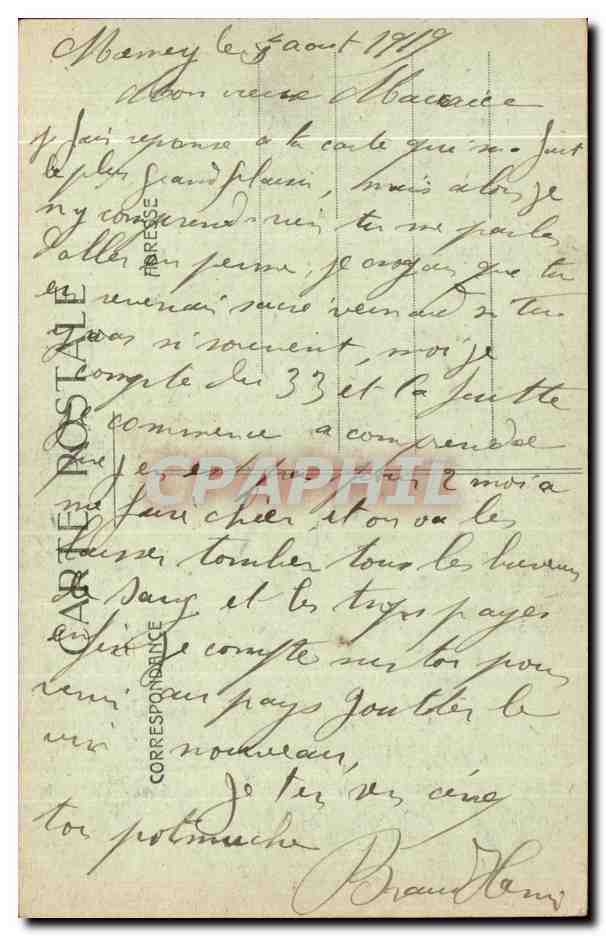 Mamey le 5 aout 1919
Mon vieux Maurice
je fais reponse a ta carte qui m'a fait
le plus grand plaisir, mais alors je
n'y comprend rien tu me parles
d'aller en perme, je croyais que tu
en revenais sacré veinard si tu
y vas si souvent, moi je
compte du 33 et la jutte
je commence a comprendre
que j'en ai plus pour 2 mois a
me faire chier et on va les
laisser tomber tous les buveurs
de sang et les trops payés
enfin je compte sur toi pour
venir au pays goutter le
vin nouveau,
Je t'en serre cinq
ton potmuche
Henri
CARTE POSTALE
CORRESPONDANCE
ADRESSE
CPAPHIL